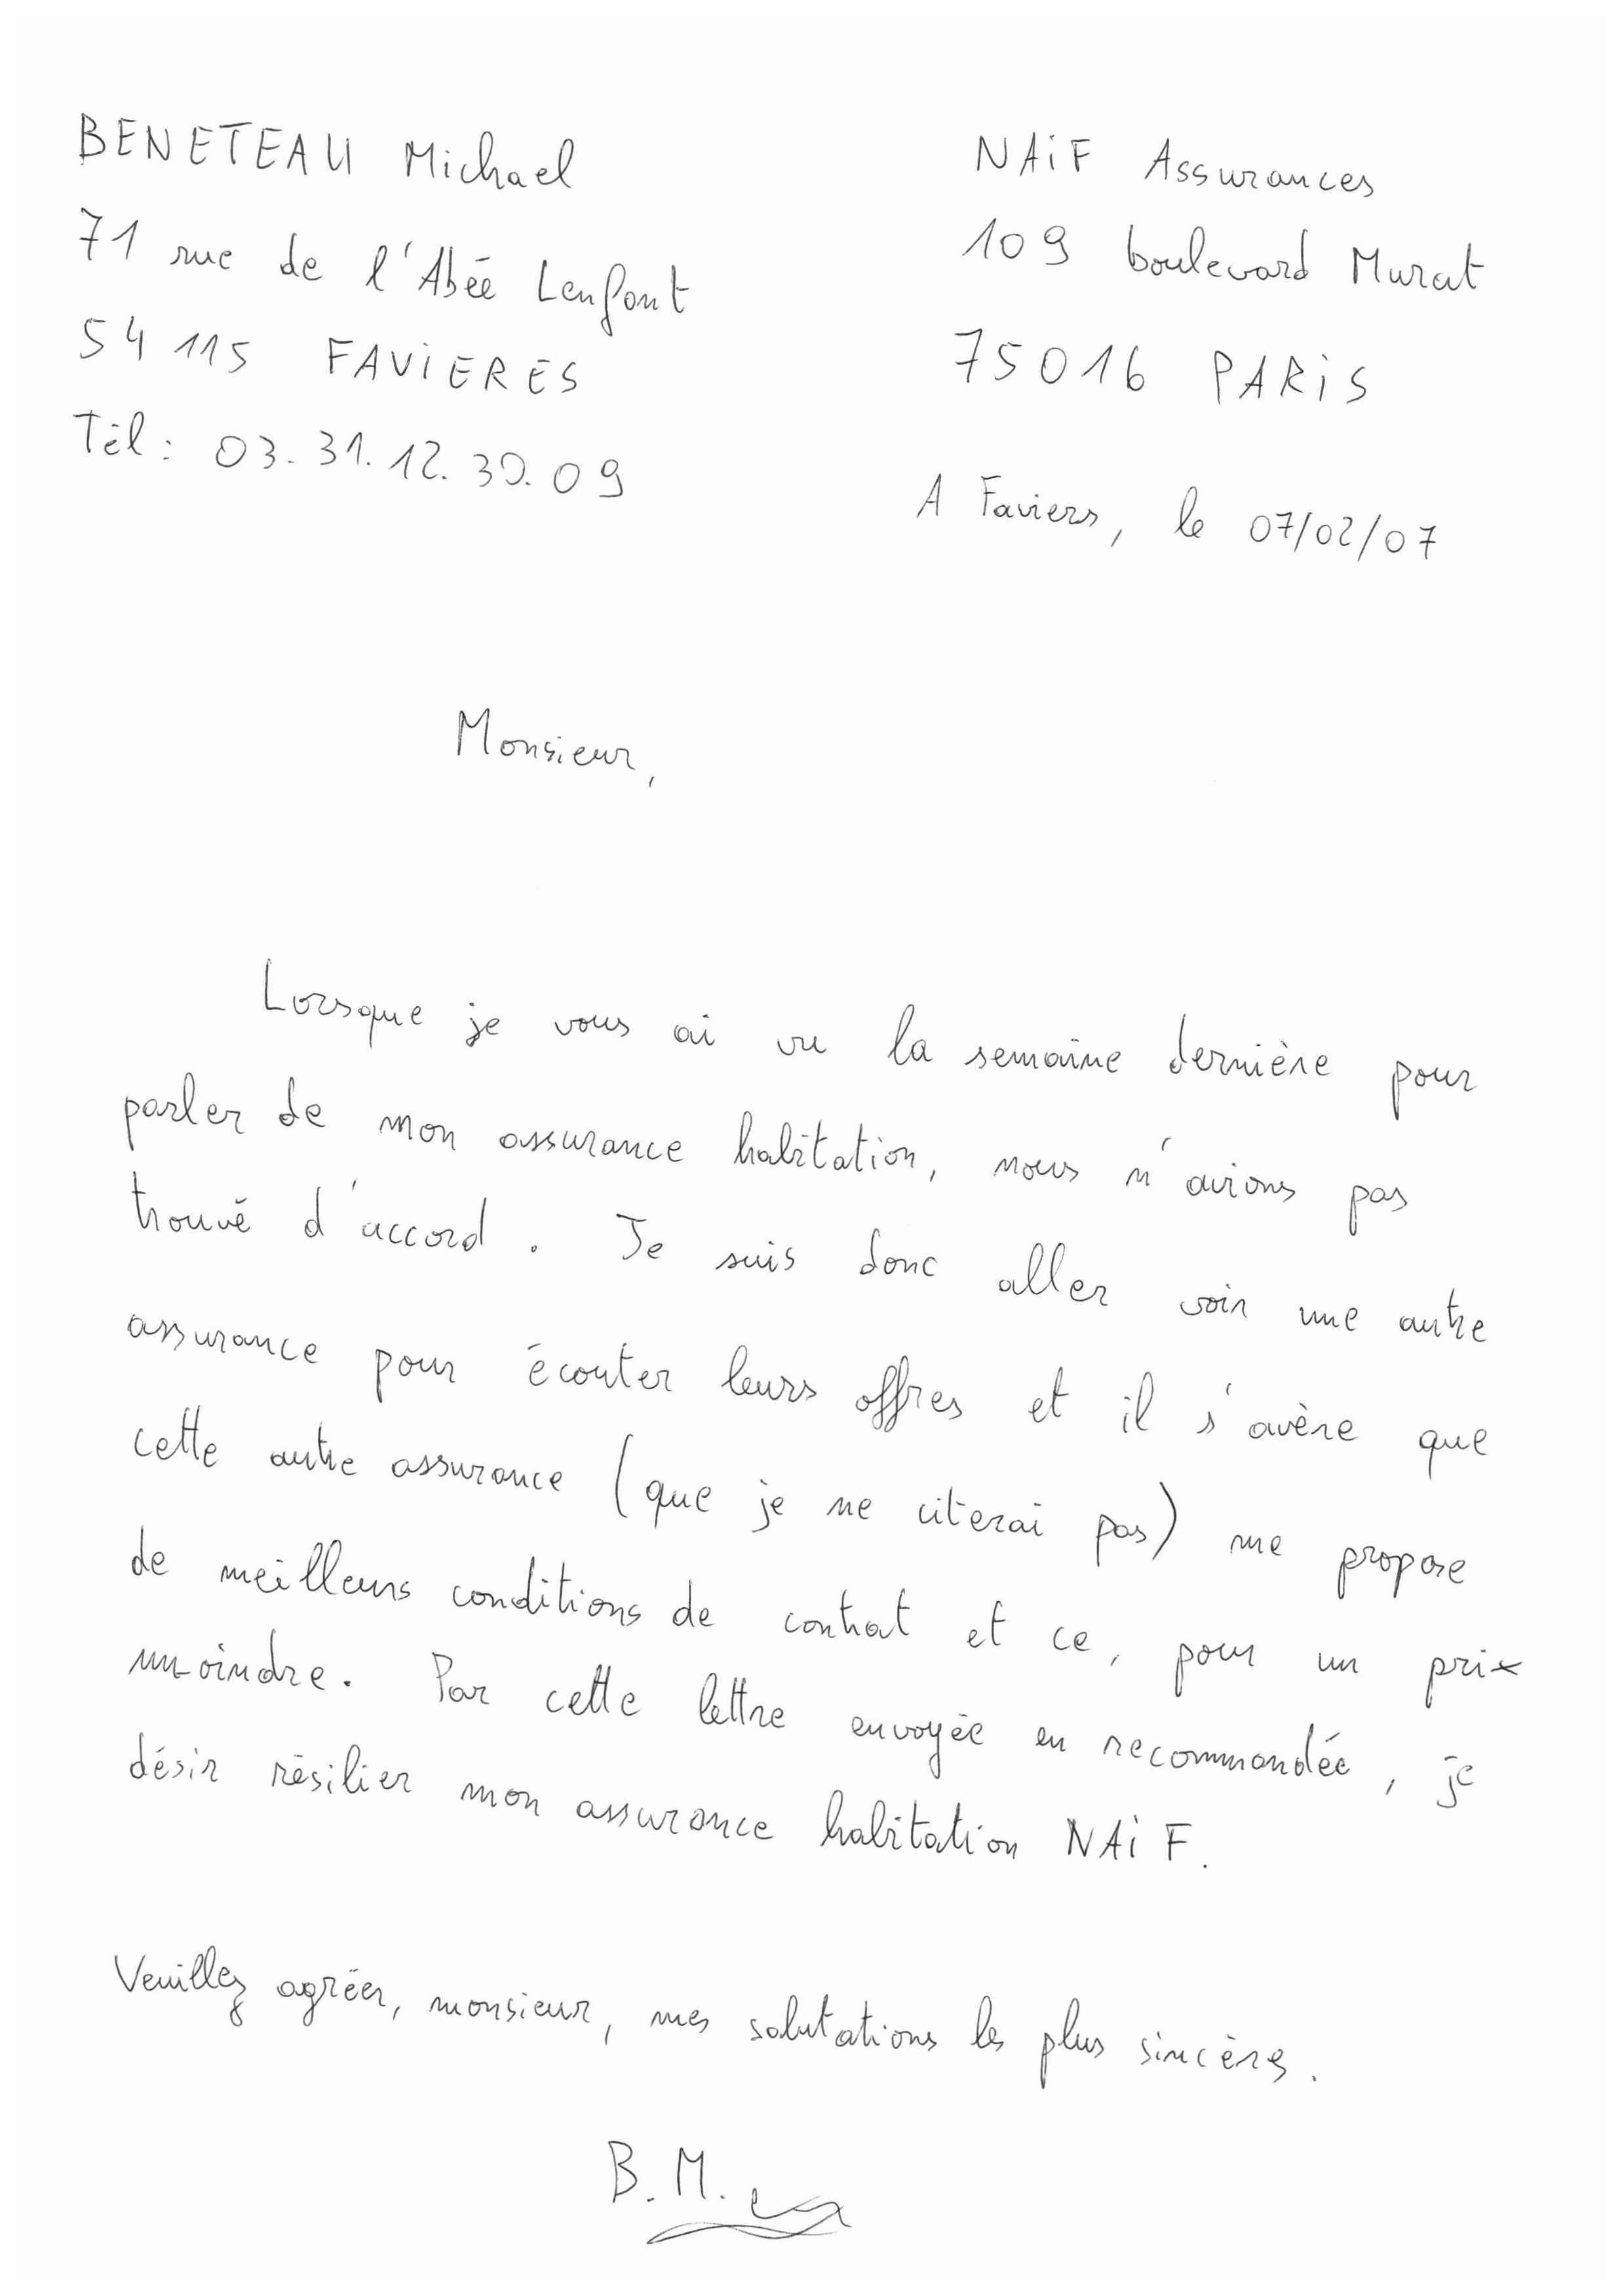 BENETEAU Michael
71 rue de l'Abéé Lenfont
54 115 FAVIERES
Tél : 03.31.12.30.09
NAiF Assurances
109 boulevard Murat
75016 PARiS
A Faviers, le 07/02/07
Monsieur,
Lorsque je vous ai vu la semaine dernière pour
parler de mon assurance habitation, nous n'avions pas
trouvé d'accord. Je suis donc aller voir une autre
assurance pour écouter leurs offres et il s'avère que
cette autre assurance (que je ne citerai pas) me propose
de meilleurs conditions de contrat et ce, pour un prix
moindre. Par cette lettre envoyée en recommandée, je
désir résilier mon assurance habitation NAiF.
Veuillez agréer, monsieur, mes salutations les plus sincères.
B.M.